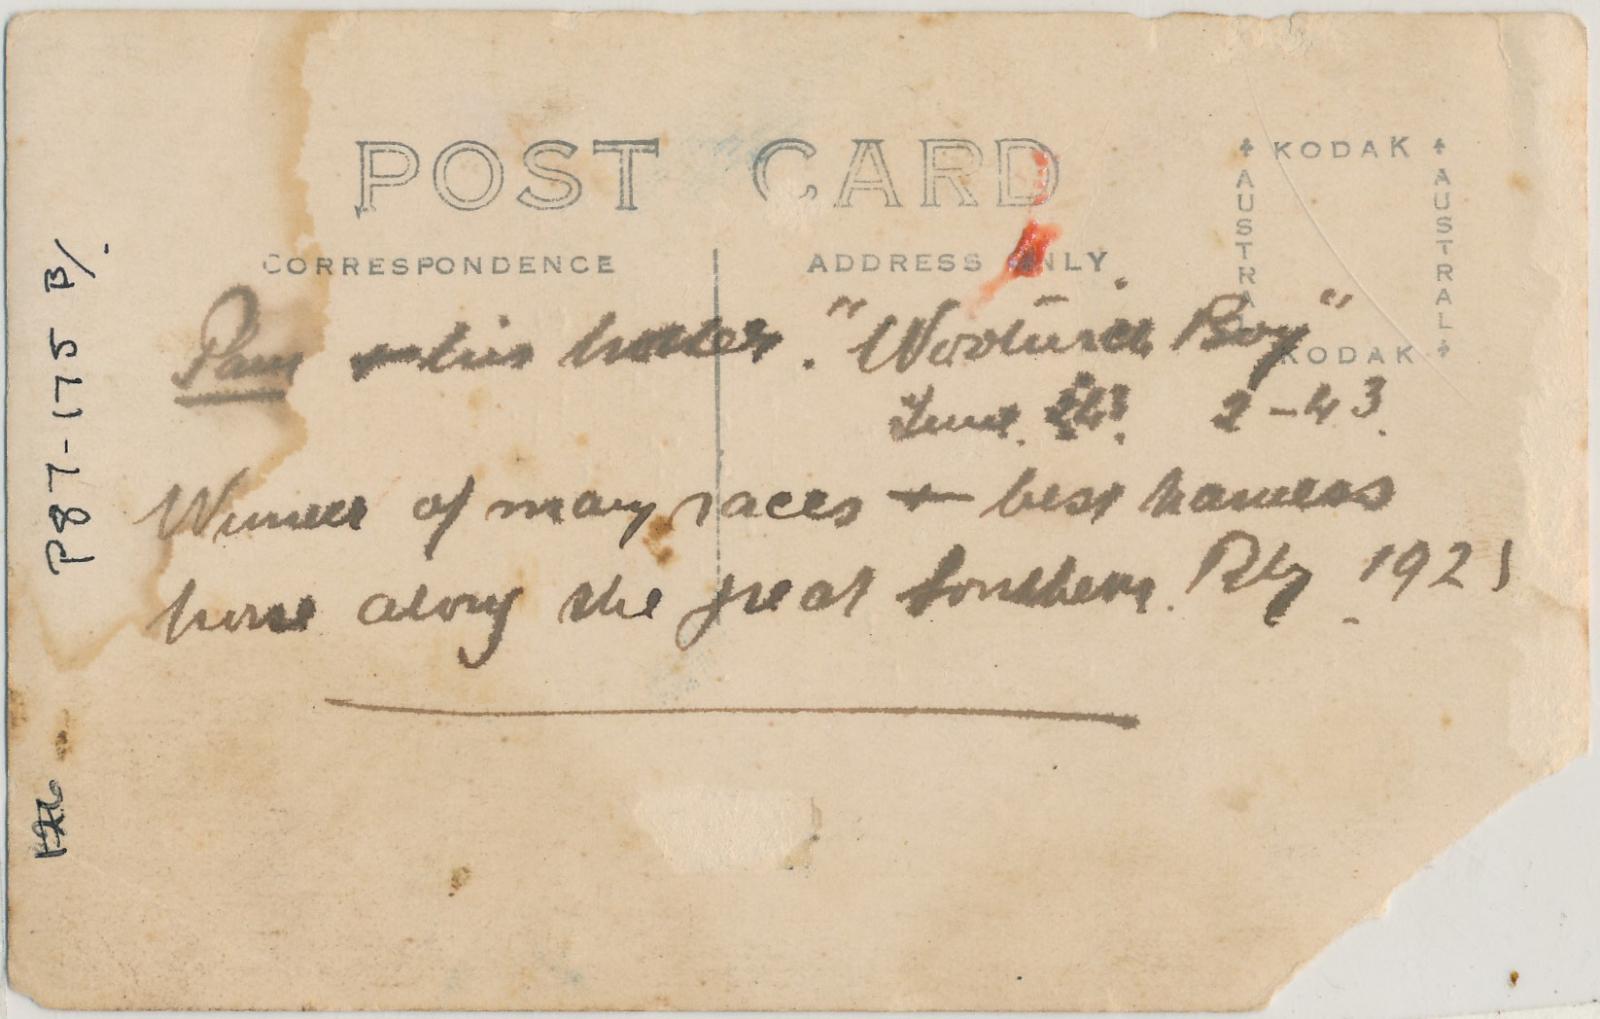 POST CARD
CORRESPONDENCE
ADDRESS ONLY
KODAK
AUSTRAL
AUSTRAL
KODAK
P87-175 B/.
+ his trotter. "                Boy"
2-43.
Winner of many races + best harness
horse along the great Southern. Rly. 1921